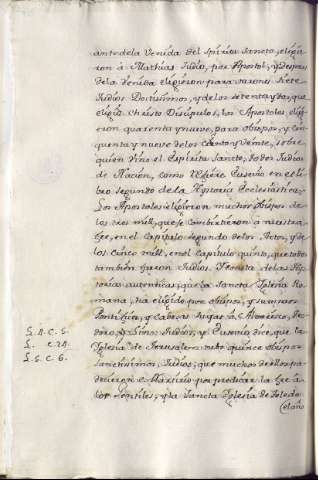 ante de la Venida del Spiritu Sancto, eligie
ron à Mathias Judio, por Apostol, y despues
de la Venida eligieron para varones Siete
Judios Doctissimos, y de los setenta y dos, que
eligió Christo Discipulos, los Apostoles, eligi
eron quarenta y nueve, para obispos, y cin
quenta y nueve de los ciento y Veinte, sobre
quien vino el Espiritu Sancto, todos Judios
de Nacion, como refiere Eusevio en el li
bro segundo de la Hystoria Ecclesiastica.
Los Apostoles eligieron muchos obispos de
los tres mill, que se combirtieron à nuestra
fee, en el Capitulo segundo de los Actos, y de
los Cinco mill, en el Capitulo quinto, que todos
tambien fueron Judios. Consta de las His
torias autenticas, que la Sancta Iglesia Ro
mana, ha eligido por obispos, y sumpsos
Pontifices, y Cabezas suyas à S. Evaristo,
doro, y Lino: Judios, y Eusevio dice que la
Iglesia de Jerusalem tubo quince obispos
sanctissimos, Judios, que muchos de ellos pa
decieron el Martirio por predicar la fee à
los gentiles, y la Sancta Iglesia de Toledo
el año
L. 4. C. 5.
L. c. 24.
L. 5. C. 6.